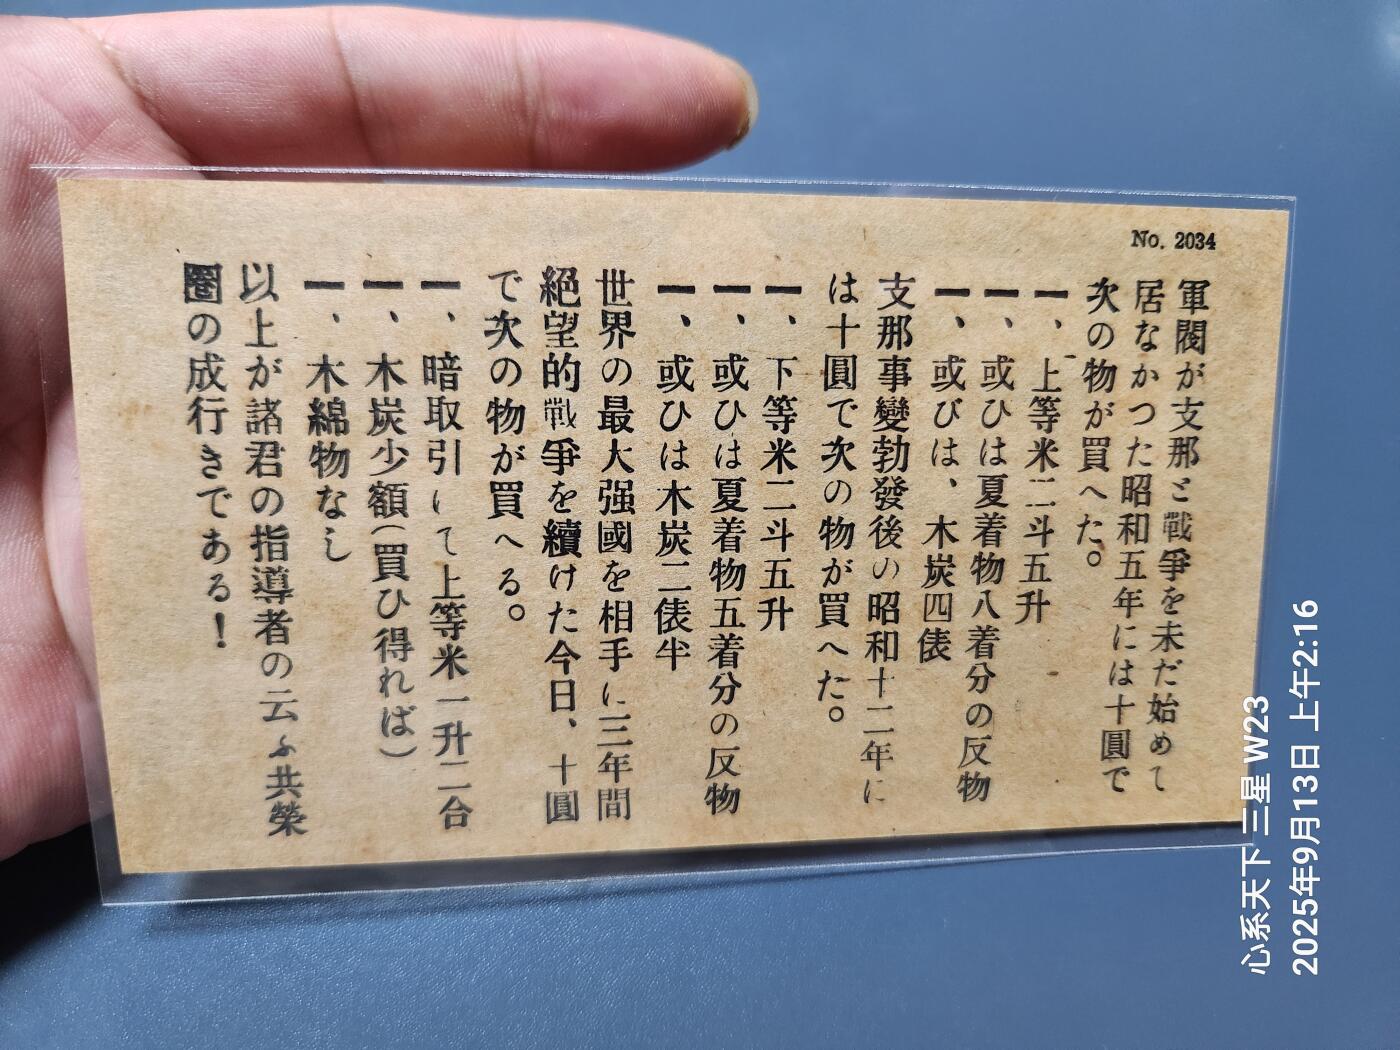 No. 2034
軍閥が支那と戰爭を未だ始めて
居なかつた昭和五年には十圓で
次の物が買へた。
一、上等米二斗五升
一、或ひは夏着物八着分の反物
一、或びは、木炭四俵
支那事變勃發後の昭和十二年に
は十圓で次の物が買へた。
一、下等米二斗五升
一、或ひは夏着物五着分の反物
一、或ひは木炭二俵半
世界の最大强國を相手に三年間
絕望的戰爭を續けた今日、十圓
で次の物が買へる。
一、暗取引にて上等米一升二合
一、木炭少額(買ひ得れば)
一、木綿物なし
以上が諸君の指導者の云ふ共榮
圈の成行きである!
心系天下 三星 W23
2025年9月13日 上午2:16